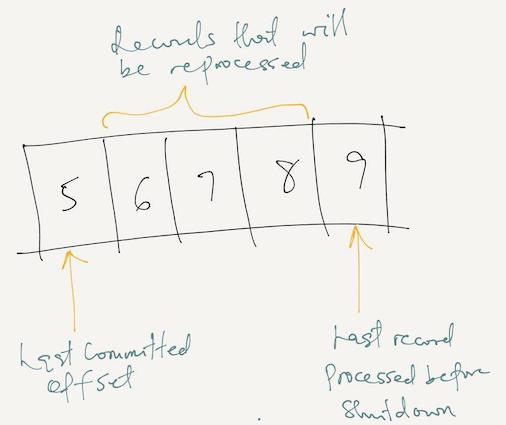 Records that will
be reprocessed
5 6 7 8 9
Last Committed
offset
Last record
Processed before
Shutdown